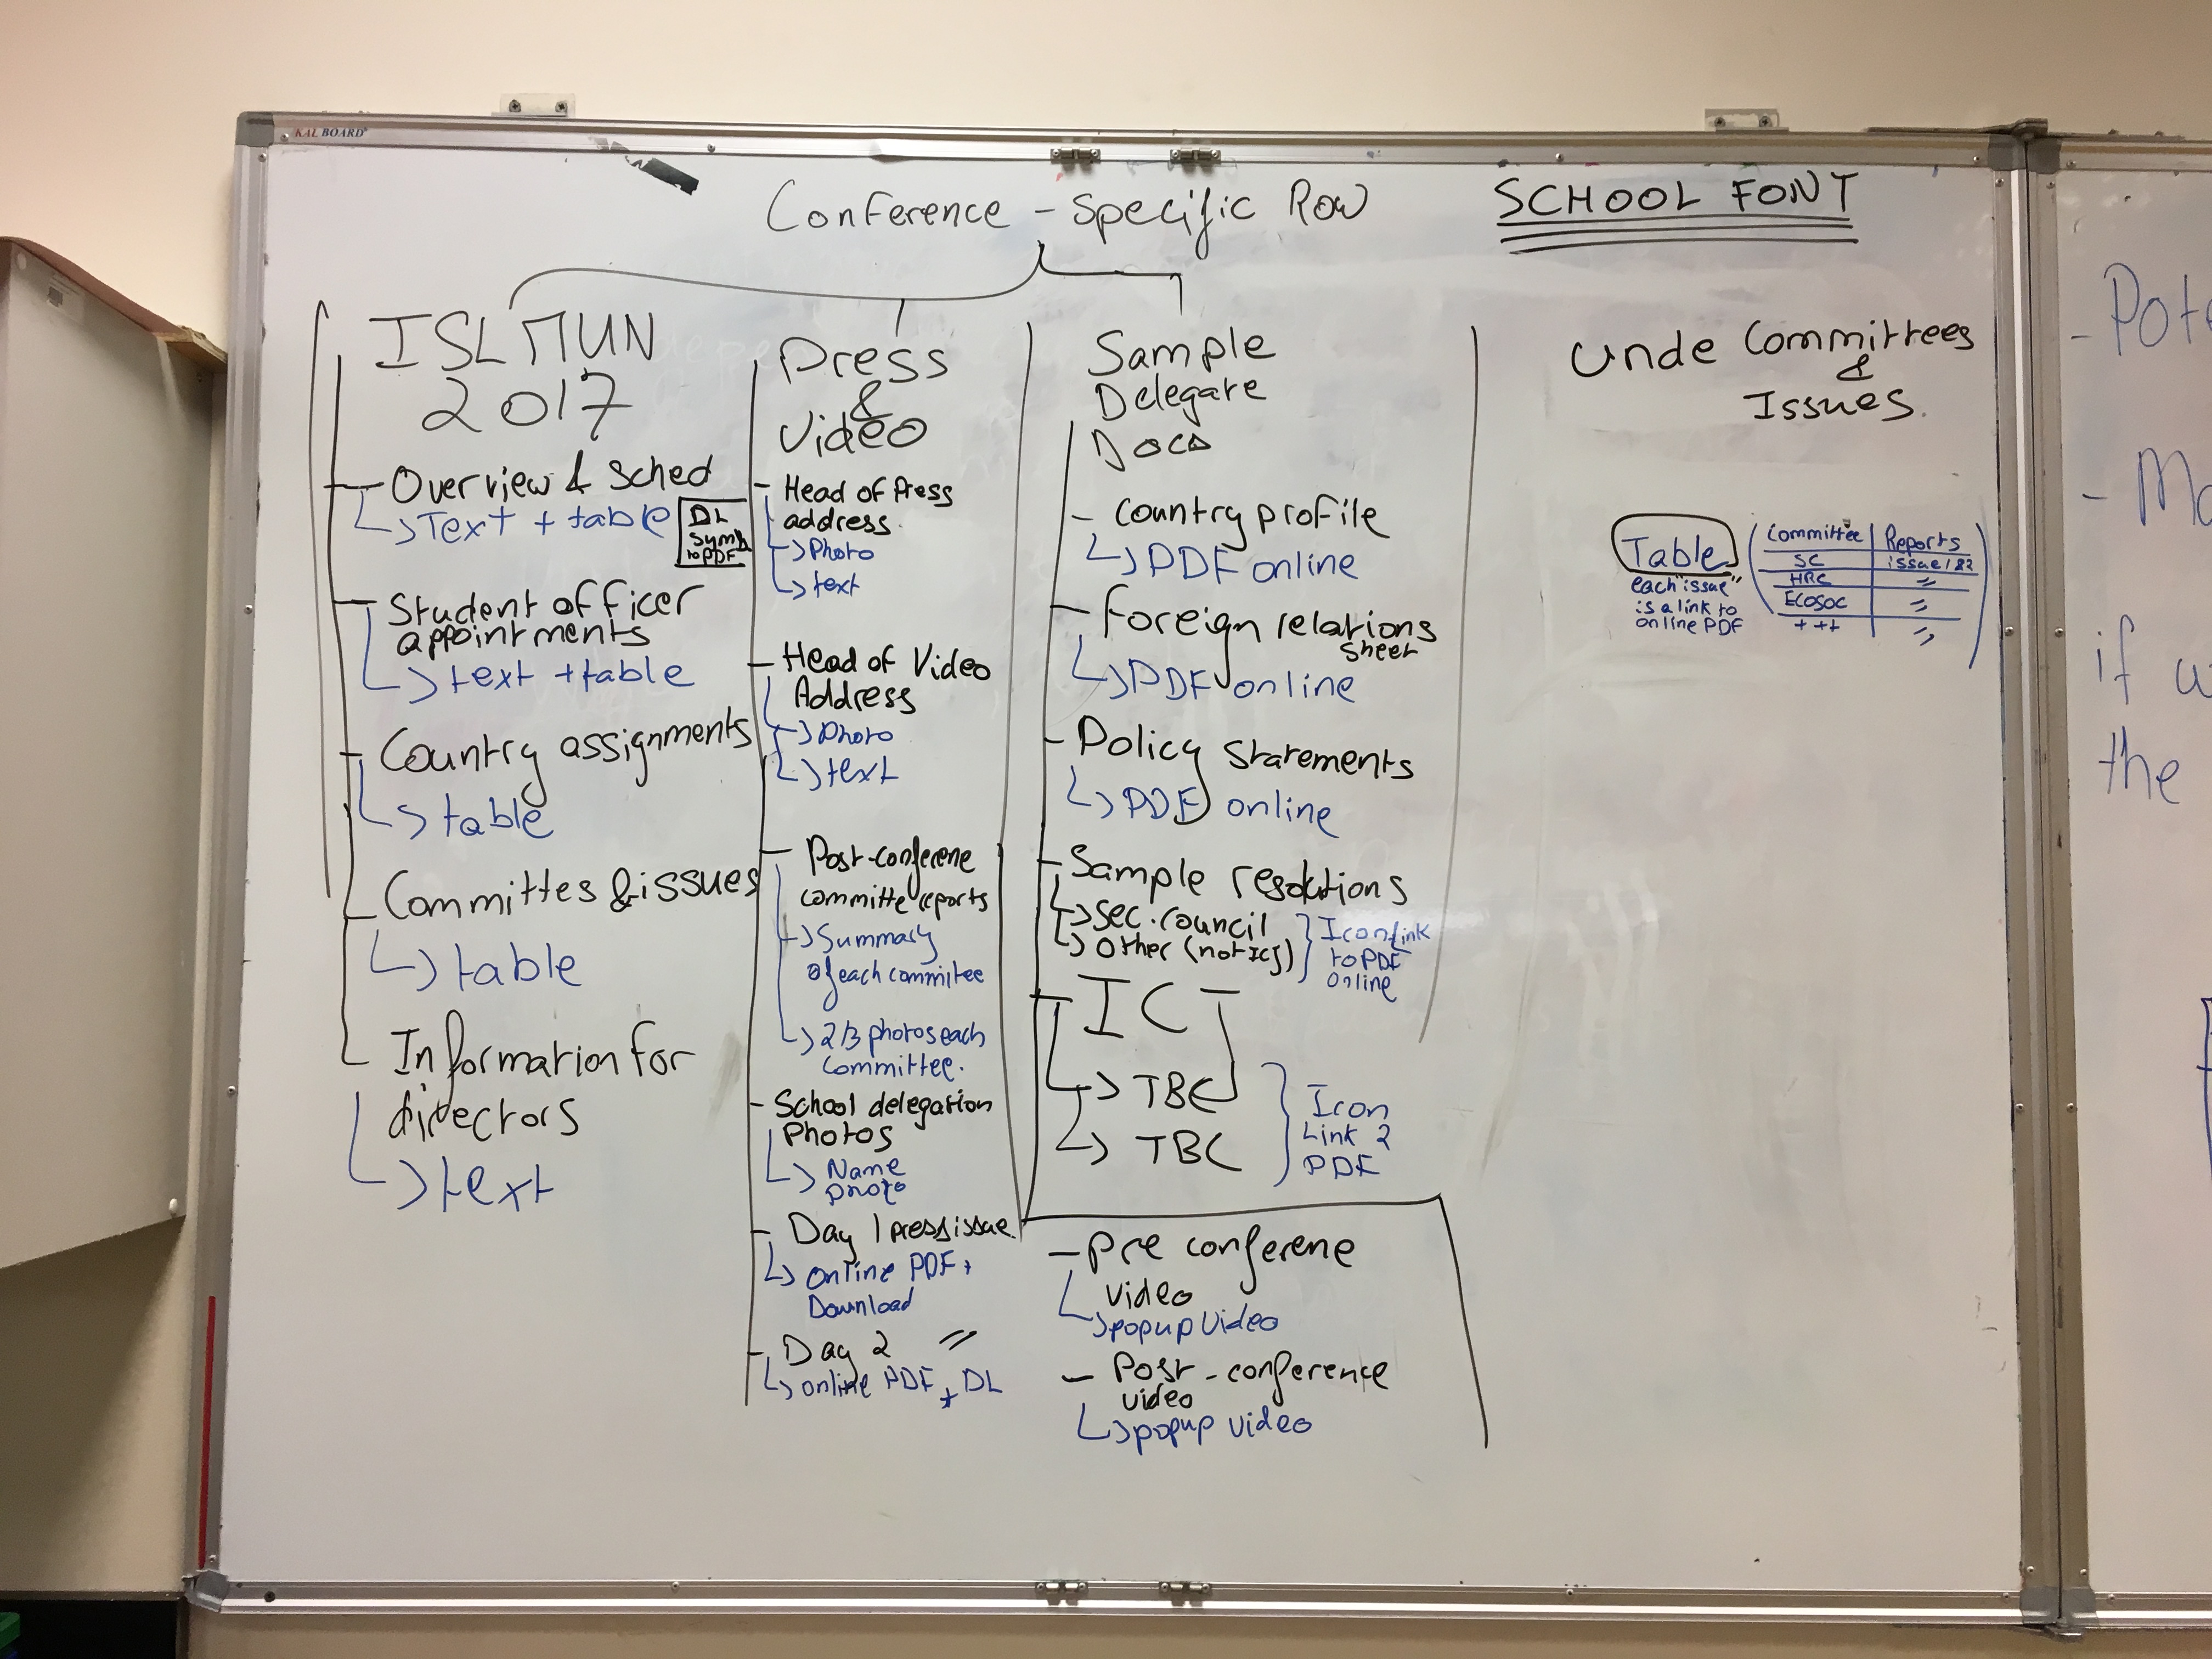 KAL BOARD
Conference - Specific Row
SCHOOL FONT
ISLMUN
2017
Overview & sched
Text + table
DL
Symb
to PDF
Student officer
appointments
text + table
Country assignments
table
Committes & issues
table
Information for
directors
text
Press
&
Video
Head of Press
address.
Photo
text
Head of Video
Address
Photo
text
Post-conferene
committe reports
Summary
of each committee
2/3 photos each
Committee.
School delegation
Photos
Name
photo
Day 1 press issue
online PDF +
Download
Day 2 〃
online PDF + DL
Sample
Delegate
Docs
Country profile
PDF online
Foreign relations
Sheet
PDF online
Policy Statements
PDF online
Sample resolutions
Sec. Council
Other (not ICJ)
Icon link
to PDF
online
ICJ
TBC
TBC
Icon
Link 2
PDF
Pre conferene
Video
popup Video
Post-conference
video
popup video
Unde Committees
&
Issues.
Table
each "issue"
is a link to
online PDF
Committee Reports
SC issue 1 & 2
HRC 〃
ECOSOC 〃
+ + + 〃
if
the